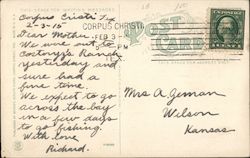 Corpus Cristi Tex
2-3-15
Dear Mother.
We were out to
Ranch
yesterday and
sure had a
fine time.
We expect to go
across the bay
in a few days
to go fishing.
With love
Richard.
CORPUS CHRISTI
FEB 3
POST
CARD
Mrs A.
Wilson
Kansas